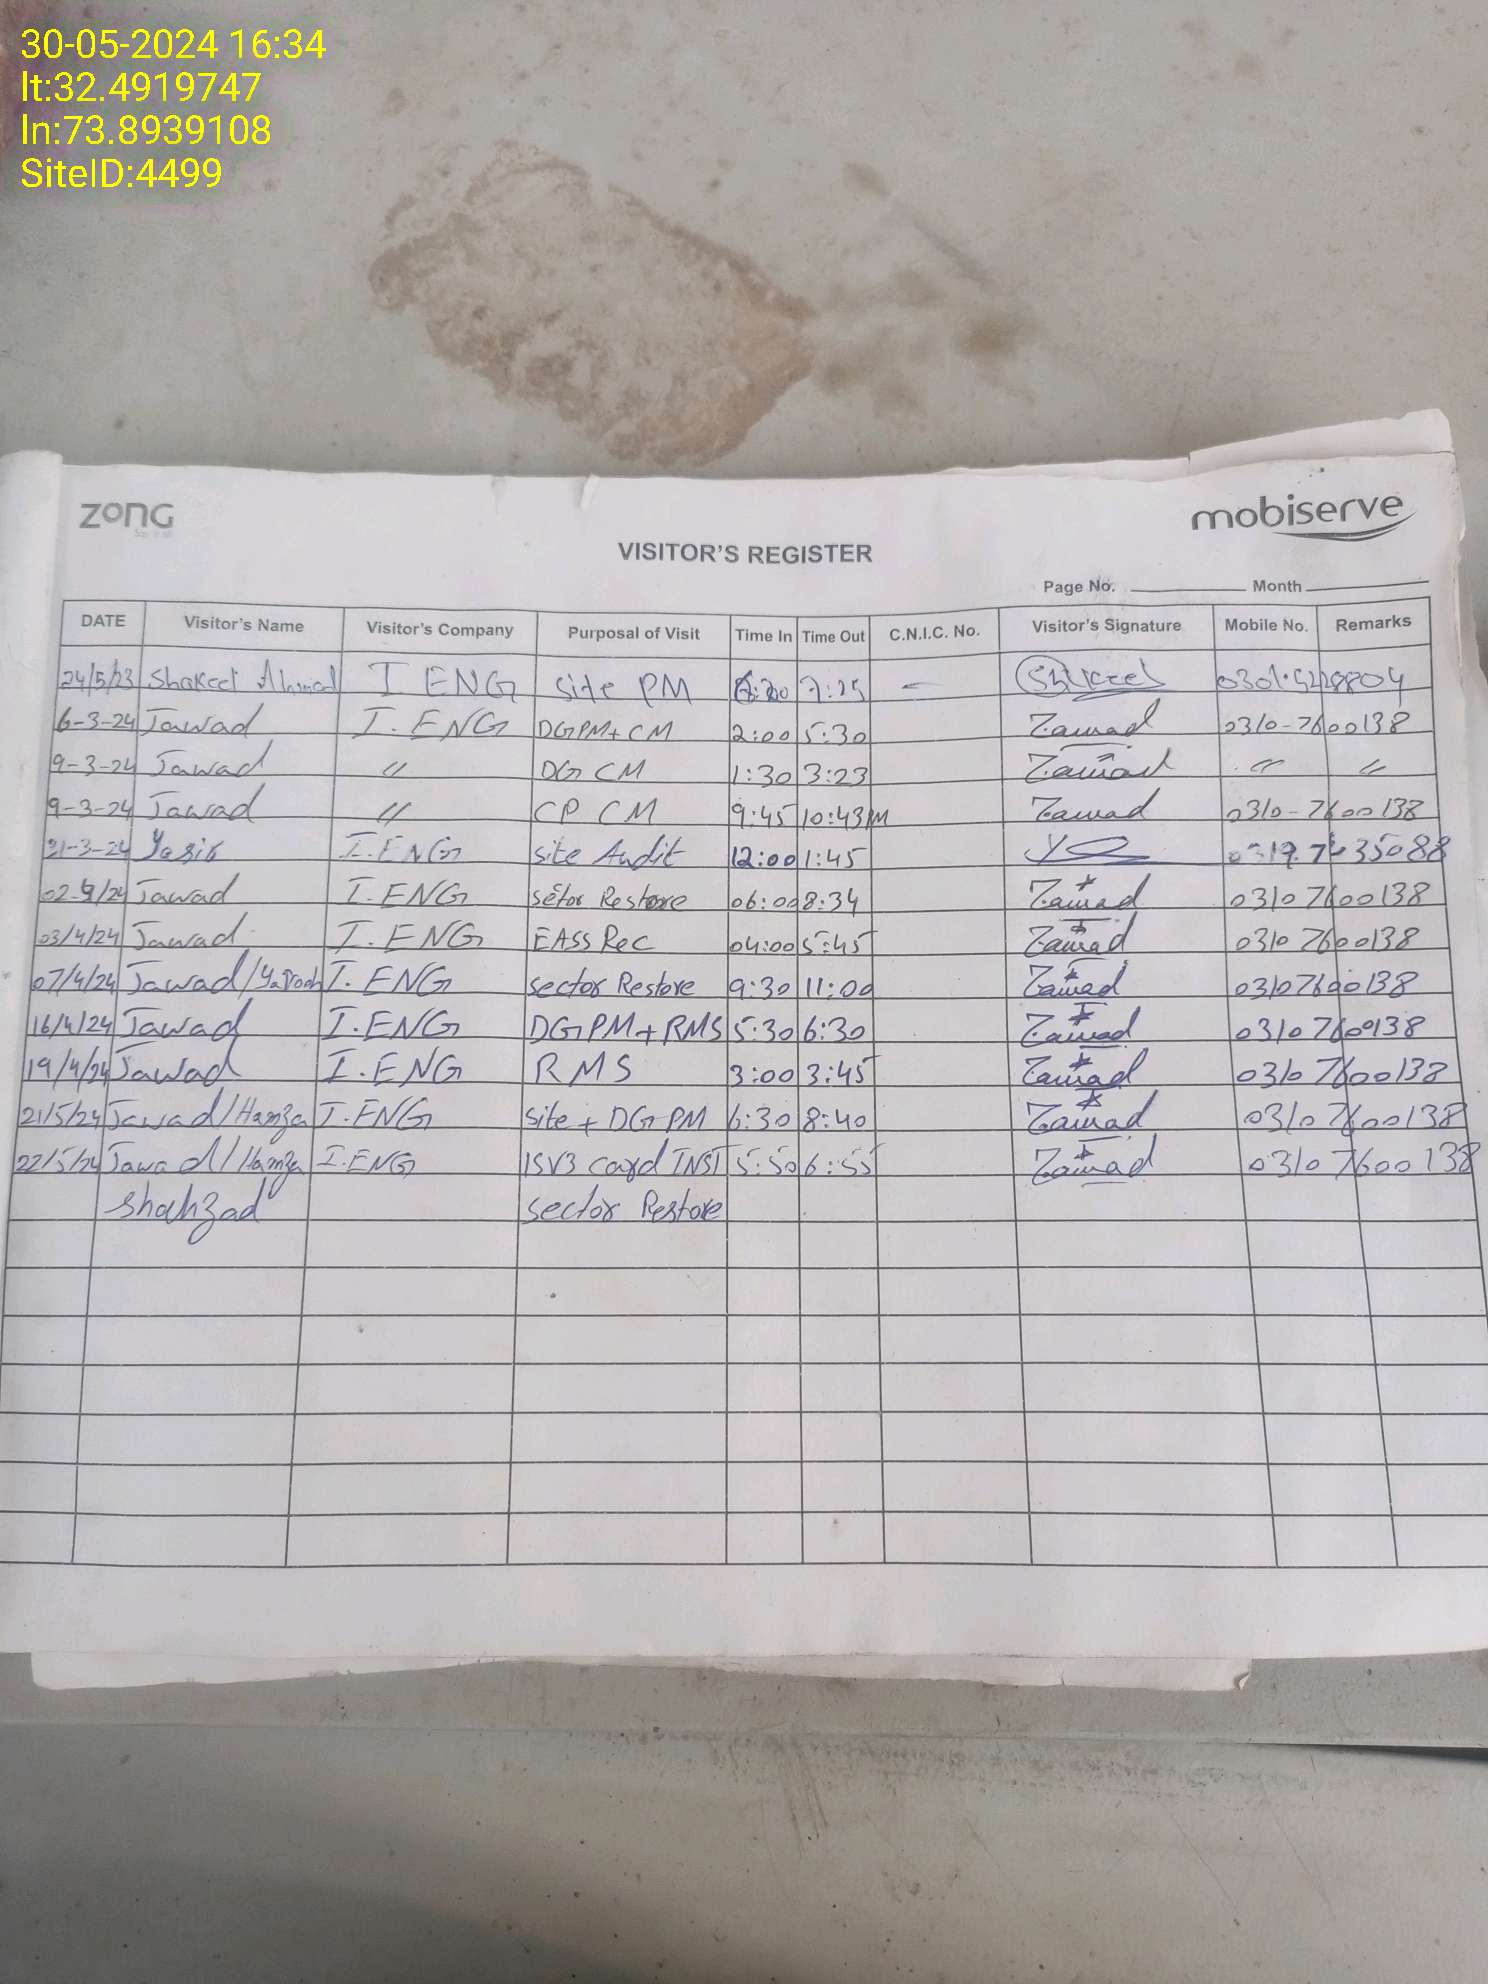 30-05-2024 16:34
lt:32.4919747
ln:73.8939108
SiteID:4499
ZONG
mobiserve
VISITOR'S REGISTER
Page No. Month
DATE Visitor's Name Visitor's Company Purposal of Visit Time In Time Out C.N.I.C. No. Visitor's Signature Mobile No. Remarks
24/5/23 Shakeel Ahmad I ENG Site PM 7:25 Shakeel
6-3-24 Jawad I.ENG DG PM+CM 2:00 5:30 Zawad 0310-7600138
9-3-24 Jawad 〃 DG CM 1:30 3:23 Zawad 〃 〃
9-3-24 Jawad 〃 CP CM 9:45 10:43PM Zawad 0310-7600138
21-3-24 Yasir I.ENG site Audit 12:00 1:45
02-4/24 Jawad I.ENG setor Restore 06:00 8:34 Zawad 03107600138
03/4/24 Jawad I.ENG EASS Rec 04:00 5:45 Zawad 03107600138
07/4/24 Jawad/ I.ENG sector Restore 9:30 11:00 Zawad 03107600138
16/4/24 Jawad I.ENG DG PM+RMS 5:30 6:30 Zawad 03107600138
19/4/24 Jawad I.ENG RMS 3:00 3:45 Zawad 03107600138
21/5/24 Jawad/Hamza I.ENG site + DG PM 6:30 8:40 Zawad 03107600138
22/5/24 Jawad/Hamza I.ENG ISV3 card INST 5:50 6:55 Zawad 03107600138
Shahzad sector Restore